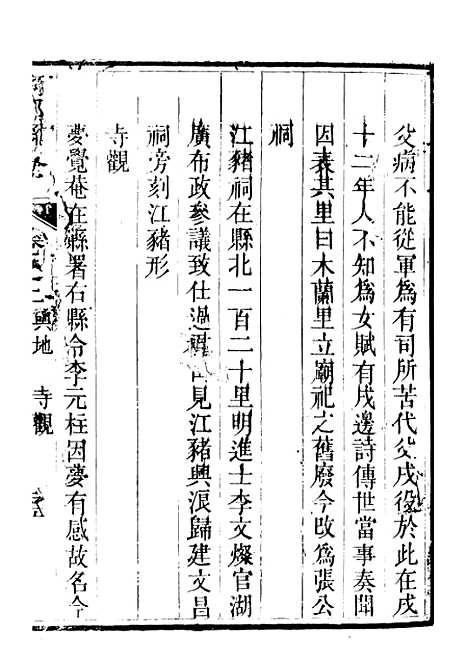 父病不能從軍爲有司所苦代父戌役於此在戍
十二年人不知爲女賦有戌邊詩傳世當事奏聞
因表其里曰木蘭里立廟祀之舊廢今改爲張公
祠
江豬祠在縣北一百二十里明進士李文燦官湖
廣布政參議致仕過 見江豬興浪歸建文昌
祠旁刻江豬形
寺觀
夢覺菴在縣署右縣令李元柱因夢有感故名今
輿地 寺觀